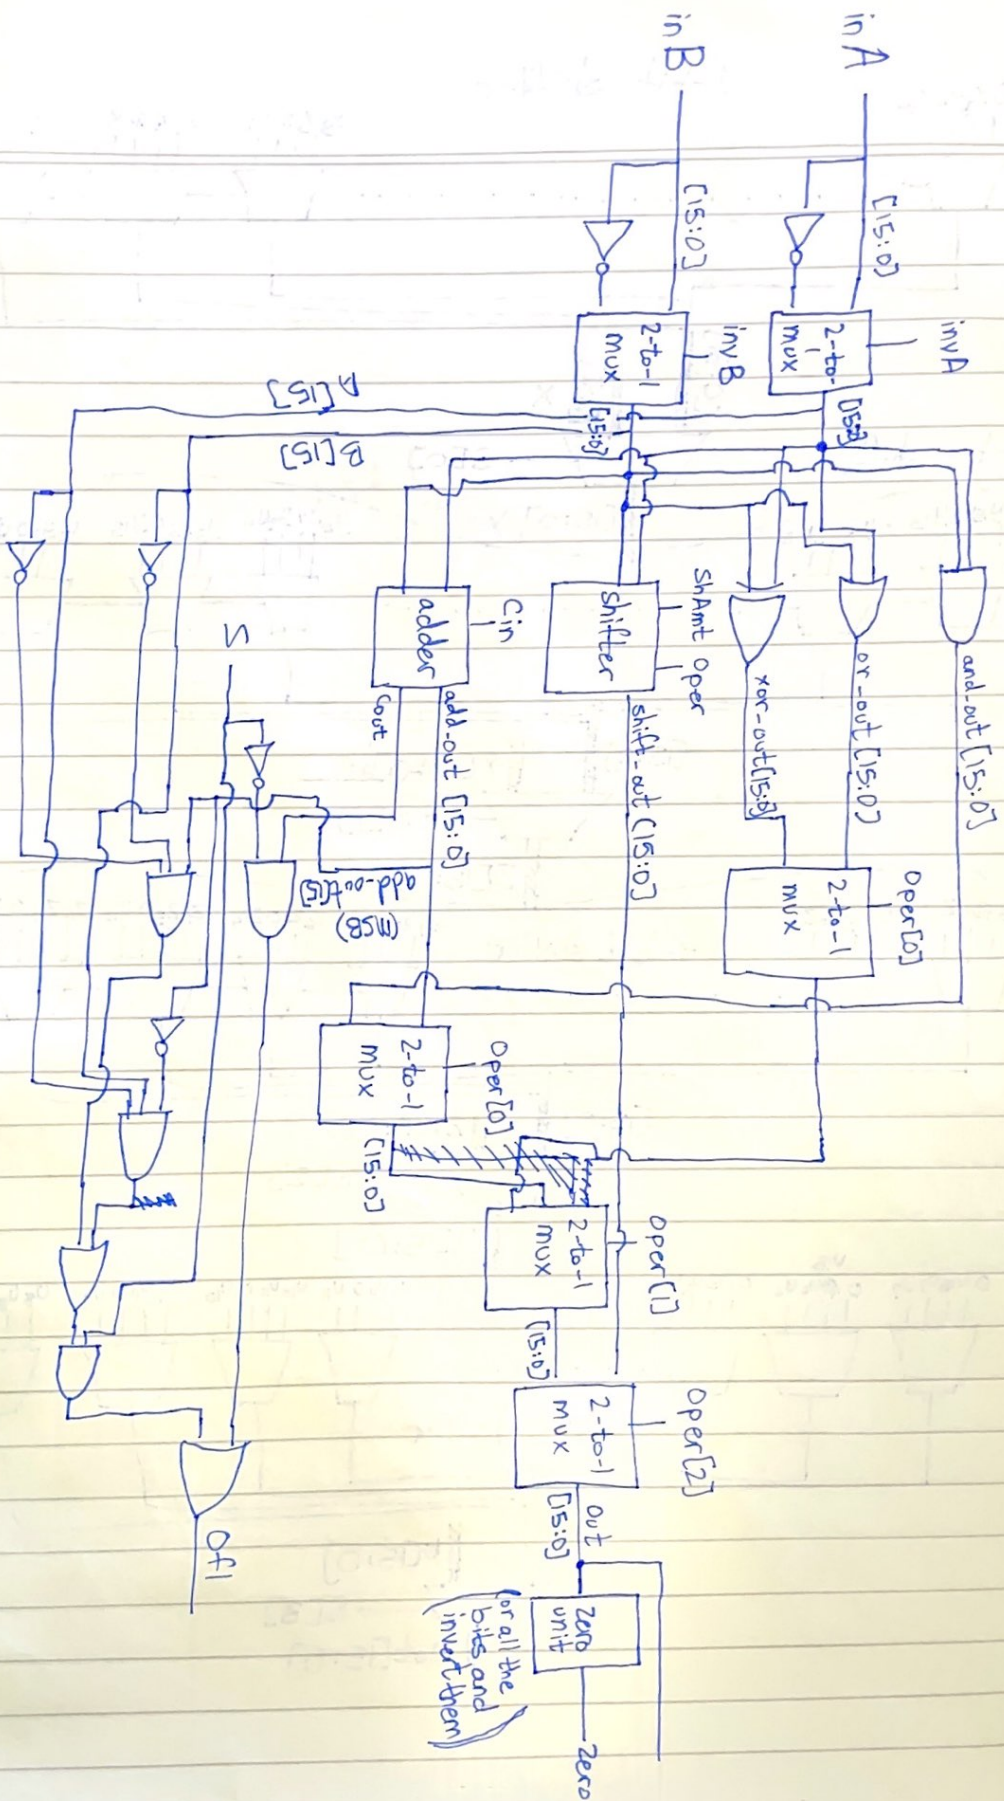 in A
[15:0]
inv A
2-to-1
mux
[15:0]
in B
[15:0]
inv B
2-to-1
mux
[15:0]
A[15]
B[15]
and-out[15:0]
or-out[15:0]
xor-out[15:0]
Oper[0]
2-to-1
mux
ShAmt Oper
shifter
shift-out(15:0]
Cin
adder
add-out [15:0]
Cout
add-out[15]
(MSB)
S
Oper[0]
2-to-1
mux
(15:0]
Oper[1]
2-to-1
mux
[15:0]
Oper[2]
2-to-1
mux
Out
[15:0]
Zero
unit
(or all the
bits and
invert them)
Zero
Ofl